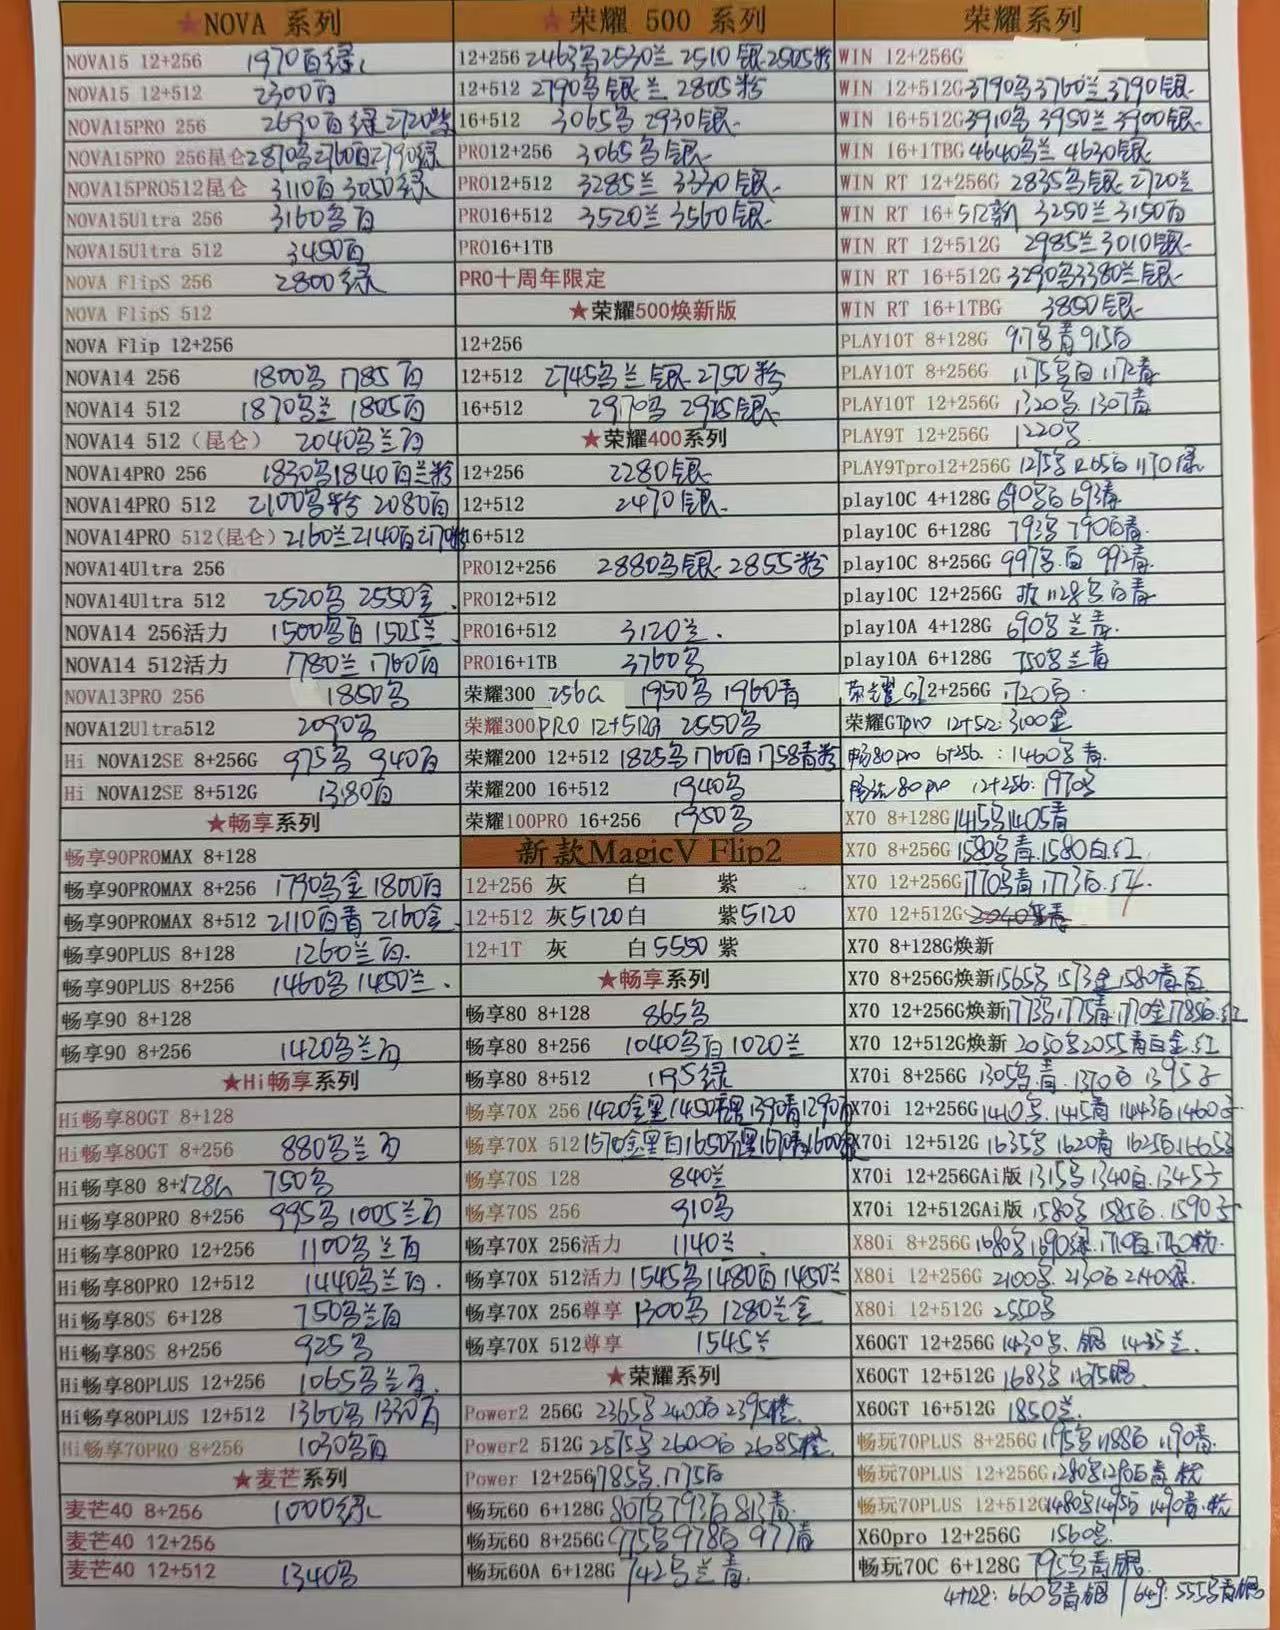 ★NOVA 系列
NOVA15 12+256 1970百绿
NOVA15 12+512 2300百
NOVA15PRO 256 2690百绿2720紫
NOVA15PRO 256昆仑2870乌2760百2790绿
NOVA15PRO512昆仑 3110百3050绿
NOVA15Ultra 256 3160乌百
NOVA15Ultra 512 3450百
NOVA FlipS 256 2800绿
NOVA FlipS 512
NOVA Flip 12+256
NOVA14 256 1800乌 1785百
NOVA14 512 1870乌兰 1805百
NOVA14 512（昆仑） 2040乌兰百
NOVA14PRO 256 1830乌1840百兰粉
NOVA14PRO 512 2100乌粉 2080百
NOVA14PRO 512(昆仑) 2160兰2140百2170粉
NOVA14Ultra 256
NOVA14Ultra 512 2520乌 2550金
NOVA14 256活力 1500乌百 1505兰
NOVA14 512活力 1780兰 1760百
NOVA13PRO 256 1850乌
NOVA12Ultra512 2090乌
Hi NOVA12SE 8+256G 975乌 940百
Hi NOVA12SE 8+512G 1380百
★畅享系列
畅享90PROMAX 8+128
畅享90PROMAX 8+256 1790乌金1800百
畅享90PROMAX 8+512 2110百青 2160金
畅享90PLUS 8+128 1260兰百
畅享90PLUS 8+256 1460乌 1450兰
畅享90 8+128
畅享90 8+256 1420乌兰百
★Hi畅享系列
Hi畅享80GT 8+128
Hi畅享80GT 8+256 880乌兰百
Hi畅享80 8+128G 750乌
Hi畅享80PRO 8+256 995乌 1005兰百
Hi畅享80PRO 12+256 1100乌兰百
Hi畅享80PRO 12+512 1440乌兰百
Hi畅享80S 6+128 750乌兰百
Hi畅享80S 8+256 925乌
Hi畅享80PLUS 12+256 1065乌兰百
Hi畅享80PLUS 12+512 1360乌1330百
Hi畅享70PRO 8+256 1030乌百
★麦芒系列
麦芒40 8+256 1000绿
麦芒40 12+256
麦芒40 12+512 1340乌
★荣耀 500 系列
12+256 2463乌2530兰 2510银2505粉
12+512 2790乌银兰 2805粉
16+512 3065乌 2930银
PRO12+256 3065乌银
PRO12+512 3285兰 3330银
PRO16+512 3520兰 3560银
PRO16+1TB
PRO十周年限定
★荣耀500焕新版
12+256
12+512 2745乌兰银2750粉
16+512 2970乌 2925银
★荣耀400系列
12+256 2280银
12+512 2470银
16+512
PRO12+256 2880乌银 2855粉
PRO12+512
PRO16+512 3120兰
PRO16+1TB 3760乌
荣耀300 256G 1950乌 1960青
荣耀300PRO 12+512G 2550乌
荣耀200 12+512 1825乌1760百1758青粉
荣耀200 16+512 1940乌
荣耀100PRO 16+256 1950乌
新款MagicV Flip2
12+256 灰 白 紫
12+512 灰5120白 紫5120
12+1T 灰 白5550 紫
★畅享系列
畅享80 8+128 865乌
畅享80 8+256 1040乌百1020兰
畅享80 8+512 1195绿
畅享70X 256 1420金黑1450 1390青1290百
畅享70X 512 1570金黑百1650 1670青1600
畅享70S 128 840兰
畅享70S 256 910乌
畅享70X 256活力 1140兰
畅享70X 512活力 1545乌1480百1450兰
畅享70X 256尊享 1300乌 1280兰金
畅享70X 512尊享 1545兰
★荣耀系列
Power2 256G 2365乌2400百2395橙
Power2 512G 2575乌2600百2685橙
Power 12+256 1785乌1775百
畅玩60 6+128G 807乌793百813青
畅玩60 8+256G 975乌978百 977青
畅玩60A 6+128G 742乌兰青
荣耀系列
WIN 12+256G
WIN 12+512G3790乌3760兰3790银
WIN 16+512G3910乌 3950兰3900银
WIN 16+1TBG4640乌兰4630银
WIN RT 12+256G 2835乌银 2720兰
WIN RT 16+512新 3250兰3150百
WIN RT 12+512G 2985兰3010银
WIN RT 16+512G3290乌3380兰银
WIN RT 16+1TBG 3850银
PLAY10T 8+128G 917乌青915百
PLAY10T 8+256G 1175乌百1172青
PLAY10T 12+256G 1320乌1307青
PLAY9T 12+256G 1220乌
PLAY9Tpro12+256G 1275乌1265百1170绿
play10C 4+128G 690乌百693青
play10C 6+128G 793乌790百青
play10C 8+256G 997乌百 992青
play10C 12+256G 1128乌百青
play10A 4+128G 690乌兰青
play10A 6+128G 750乌兰青
荣耀GT 12+256G 1720百
荣耀GTpro 12+512:3100金
畅80pro 6+256:1460乌青
畅玩80pro 12+256:1970乌
X70 8+128G1415乌1405青
X70 8+256G1580乌青1580白红
X70 12+256G1770乌青1773百红
X70 12+512G
X70 8+128G焕新
X70 8+256G焕新1565乌1573金1580青百
X70 12+256G焕新1773乌1775青1770金1785百红
X70 12+512G焕新 2050乌2055青白金红
X70i 8+256G 1305乌青1370白1395子
X70i 12+256G1410乌1415青1443百1460子
X70i 12+512G 1635乌1620青1625百1665子
X70i 12+256GAi版 1315乌1340百1345子
X70i 12+512GAi版 1580乌1585百1590子
X80i 8+256G 1680乌1690绿1710百1760
X80i 12+256G 2100乌2130百2140绿
X80i 12+512G 2550乌
X60GT 12+256G 1430乌银1435兰
X60GT 12+512G 1683乌1675银
X60GT 16+512G 1850兰
畅玩70PLUS 8+256G1195乌1188百1190青
畅玩70PLUS 12+256G1280乌1290百青
畅玩70PLUS 12+512G1480乌1495百1490青
X60pro 12+256G 1560
畅玩70C 6+128G 795乌青银
4+128:660乌青银/64g:555乌青银